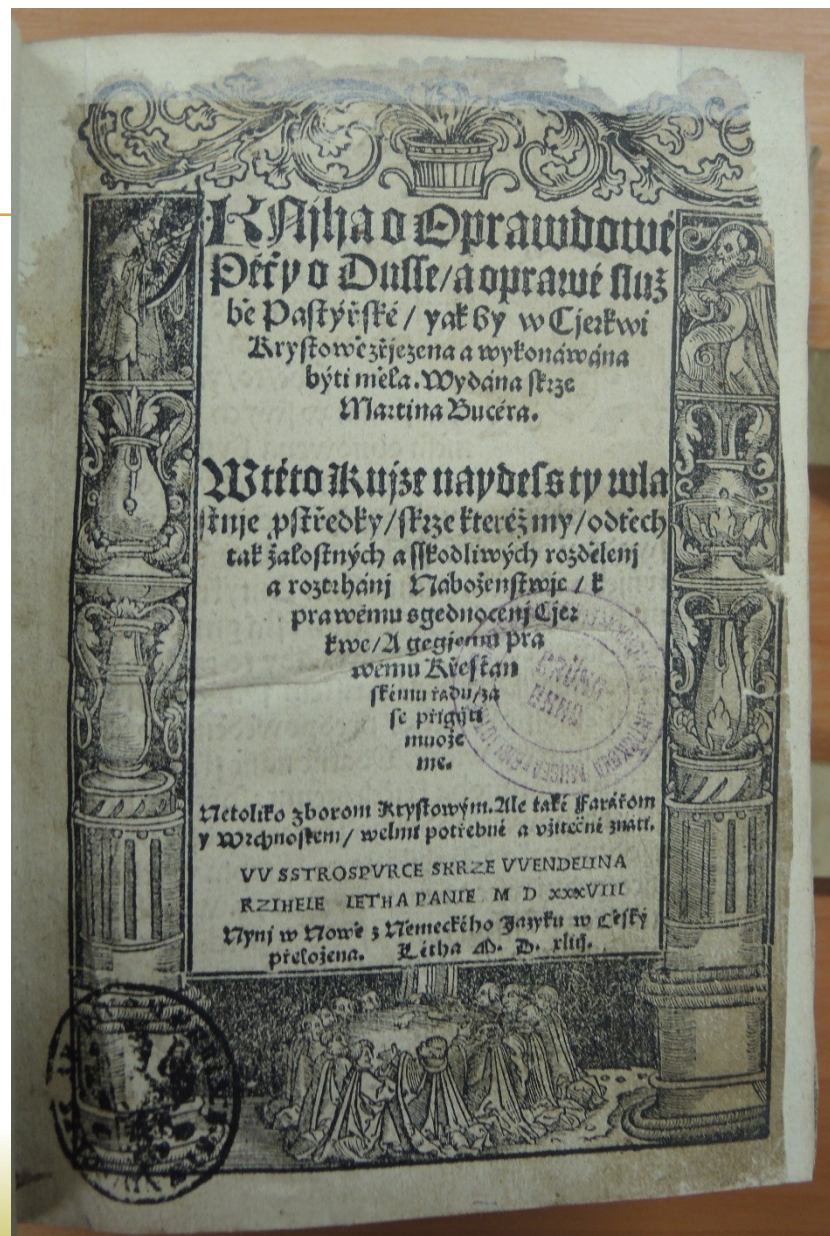 KNijha o Oprawdowé
Péčy o Dusse/a oprawé služ
bě Pastýřské / yak by w Cjerkwi
Krystowě zřjezena a wykonáwána
býti měla. Wydána skrze
Martina Bucéra.
W této Knjze naydeš ty wla
stnje pstředky/skrze kteréž my/od těch
tak žalostných a sskodliwých rozdělenj
a roztrhánj Náboženstwje / k
prawému sgednocenj Cjer
kwe/A gegjemu pra
wému Křestan
skému řadu/za
se přigjti
muože
me.
Netoliko zborom Krystowým. Ale také Farářom
y Wrchnostem/ welmi potřebné a vžitečné znáti.
VV SSTROSPVRCE SKRZE VVENDELINA
RZIHELE LETHA PANIE M D XXXVIII
Nynj w Nowě z Nemeckého Jazyku w Cěský
přeložena. Létha M. D. xliij.